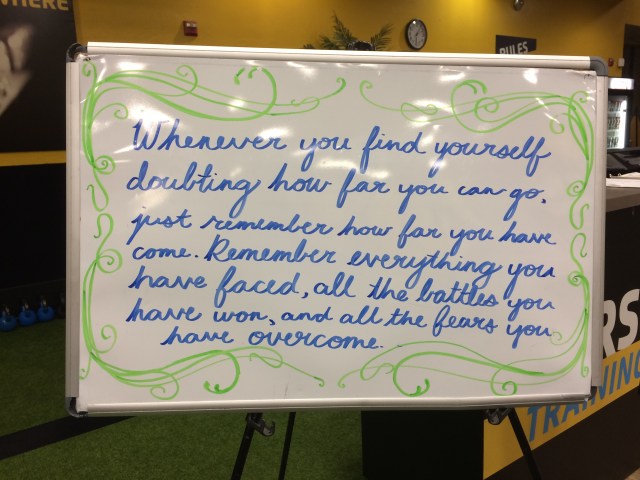 WHERE
RULES
Whenever you find yourself
doubting how far you can go,
just remember how far you have
come. Remember everything you
have faced, all the battles you
have won, and all the fears you
have overcome.
RS
TRAINING